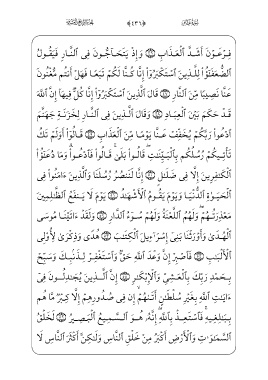 فِرْعَوْنَ أَشَدَّ ٱلْعَذَابِ ﴿٤٦﴾ وَإِذْ يَتَحَآجُّونَ فِى ٱلنَّارِ فَيَقُولُ
ٱلضُّعَفَٰٓؤُا۟ لِلَّذِينَ ٱسْتَكْبَرُوٓا۟ إِنَّا كُنَّا لَكُمْ تَبَعًا فَهَلْ أَنتُم مُّغْنُونَ
عَنَّا نَصِيبًا مِّنَ ٱلنَّارِ ﴿٤٧﴾ قَالَ ٱلَّذِينَ ٱسْتَكْبَرُوٓا۟ إِنَّا كُلٌّ فِيهَآ إِنَّ ٱللَّهَ
قَدْ حَكَمَ بَيْنَ ٱلْعِبَادِ ﴿٤٨﴾ وَقَالَ ٱلَّذِينَ فِى ٱلنَّارِ لِخَزَنَةِ جَهَنَّمَ
ٱدْعُوا۟ رَبَّكُمْ يُخَفِّفْ عَنَّا يَوْمًا مِّنَ ٱلْعَذَابِ ﴿٤٩﴾ قَالُوٓا۟ أَوَلَمْ تَكُ
تَأْتِيكُمْ رُسُلُكُم بِٱلْبَيِّنَٰتِ قَالُوا۟ بَلَىٰ قَالُوا۟ فَٱدْعُوا۟ وَمَا دُعَٰٓؤُا۟
ٱلْكَٰفِرِينَ إِلَّا فِى ضَلَٰلٍ ﴿٥٠﴾ إِنَّا لَنَنصُرُ رُسُلَنَا وَٱلَّذِينَ ءَامَنُوا۟ فِى
ٱلْحَيَوٰةِ ٱلدُّنْيَا وَيَوْمَ يَقُومُ ٱلْأَشْهَٰدُ ﴿٥١﴾ يَوْمَ لَا يَنفَعُ ٱلظَّٰلِمِينَ
مَعْذِرَتُهُمْ وَلَهُمُ ٱللَّعْنَةُ وَلَهُمْ سُوٓءُ ٱلدَّارِ ﴿٥٢﴾ وَلَقَدْ ءَاتَيْنَا مُوسَى
ٱلْهُدَىٰ وَأَوْرَثْنَا بَنِىٓ إِسْرَٰٓءِيلَ ٱلْكِتَٰبَ ﴿٥٣﴾ هُدًى وَذِكْرَىٰ لِأُو۟لِى
ٱلْأَلْبَٰبِ ﴿٥٤﴾ فَٱصْبِرْ إِنَّ وَعْدَ ٱللَّهِ حَقٌّ وَٱسْتَغْفِرْ لِذَنۢبِكَ وَسَبِّحْ
بِحَمْدِ رَبِّكَ بِٱلْعَشِىِّ وَٱلْإِبْكَٰرِ ﴿٥٥﴾ إِنَّ ٱلَّذِينَ يُجَٰدِلُونَ فِىٓ
ءَايَٰتِ ٱللَّهِ بِغَيْرِ سُلْطَٰنٍ أَتَىٰهُمْ إِن فِى صُدُورِهِمْ إِلَّا كِبْرٌ مَّا هُم
بِبَٰلِغِيهِ فَٱسْتَعِذْ بِٱللَّهِ إِنَّهُۥ هُوَ ٱلسَّمِيعُ ٱلْبَصِيرُ ﴿٥٦﴾ لَخَلْقُ
ٱلسَّمَٰوَٰتِ وَٱلْأَرْضِ أَكْبَرُ مِنْ خَلْقِ ٱلنَّاسِ وَلَٰكِنَّ أَكْثَرَ ٱلنَّاسِ لَا